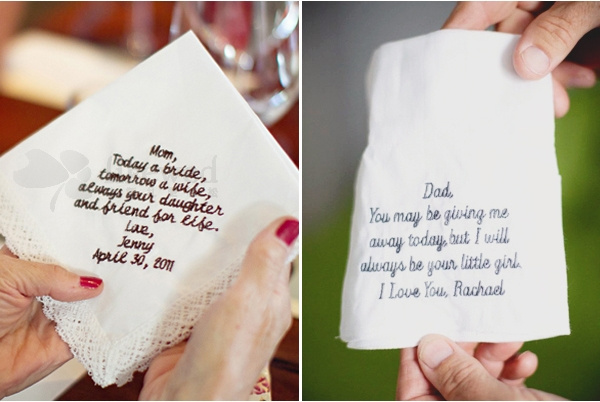 Mom,
Today a bride,
tomorrow a wife,
always your daughter
and friend for life.
Love,
Jenny
April 30, 2011
Dad,
You may be giving me
away today, but I will
always be your little girl.
I Love You, Rachael